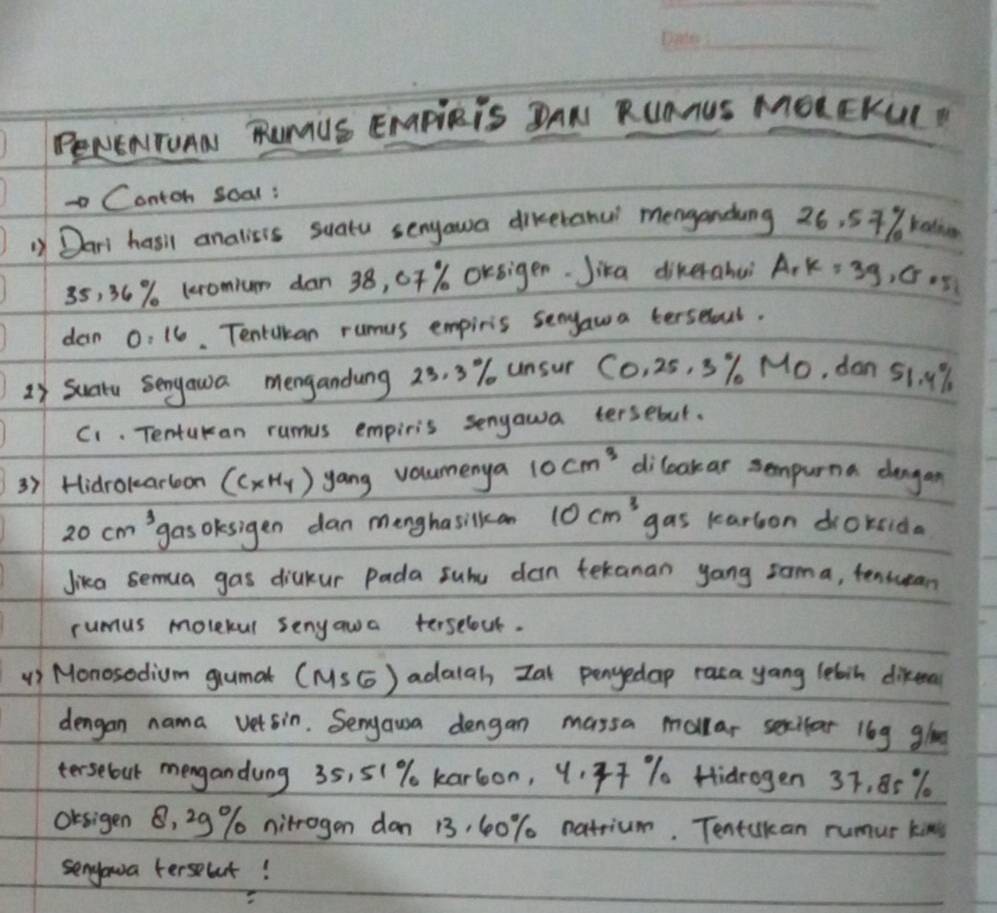 Date :
PENENTUAN RUMUS EMPIRIS DAN RUMUS MOLEKUL"
→ Contoh soal :
1) Dari hasil analisis suatu senyawa diketahui mengandung 26,57% kalium
35,36% kromium dan 38,07% Oksigen. Jika diketahui Ar K = 39, Cr = 52
dan O = 16. Tentukan rumus empiris senyawa tersebut.
2) Suatu senyawa mengandung 23.3% unsur Co, 25,3% Mo, dan 51.4%
Cl. Tentukan rumus empiris senyawa tersebut.
3) Hidrokarbon (CxHy) yang volumenya 10 cm³ dibakar sempurna dengan
20 cm³ gas oksigen dan menghasilkan 10 cm³ gas karbon dioksida
Jika semua gas diukur pada suhu dan tekanan yang sama, tentukan
rumus molekul senyawa tersebut.
4) Monosodium glumat (MSG) adalah zat penyedap rasa yang lebih dikenal
dengan nama vetsin. Senyawa dengan massa mollar sekitar 169 g/mol
tersebut mengandung 35,51% karbon, 4.77% Hidrogen 37,85%
Oksigen 8,29% nitrogen dan 13.60% natrium. Tentukan rumus kimia
senyawa tersebut !